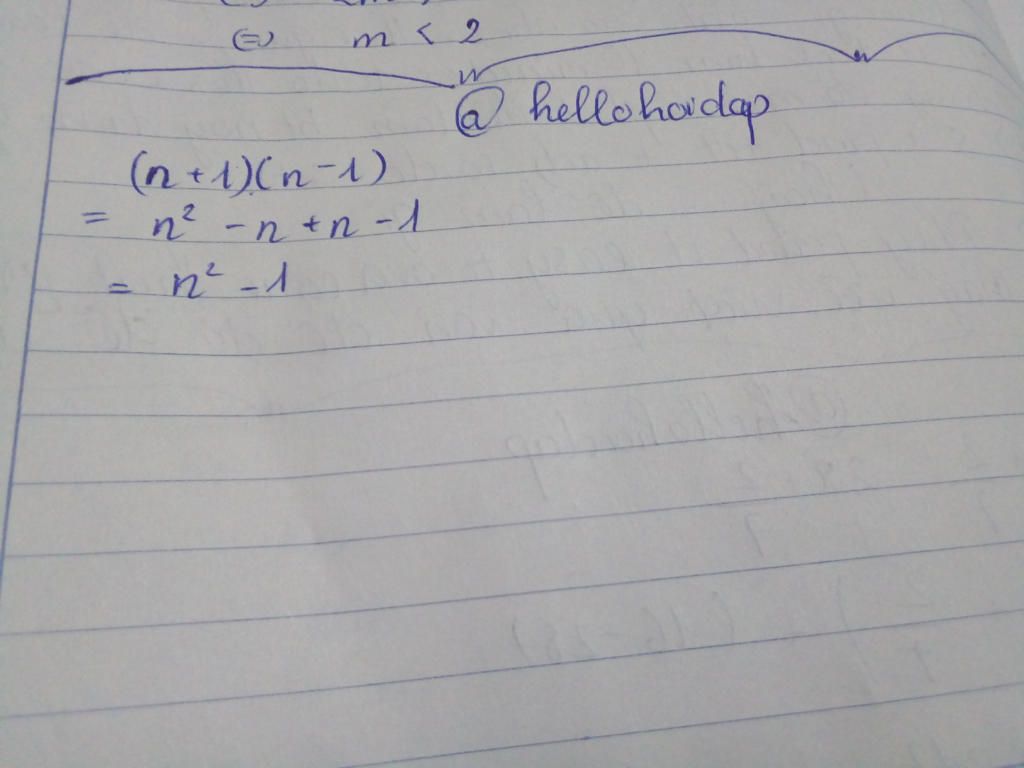 ⇔ m < 2
@ hellohoidap
(n+1)(n-1)
= n² - n + n - 1
= n² - 1